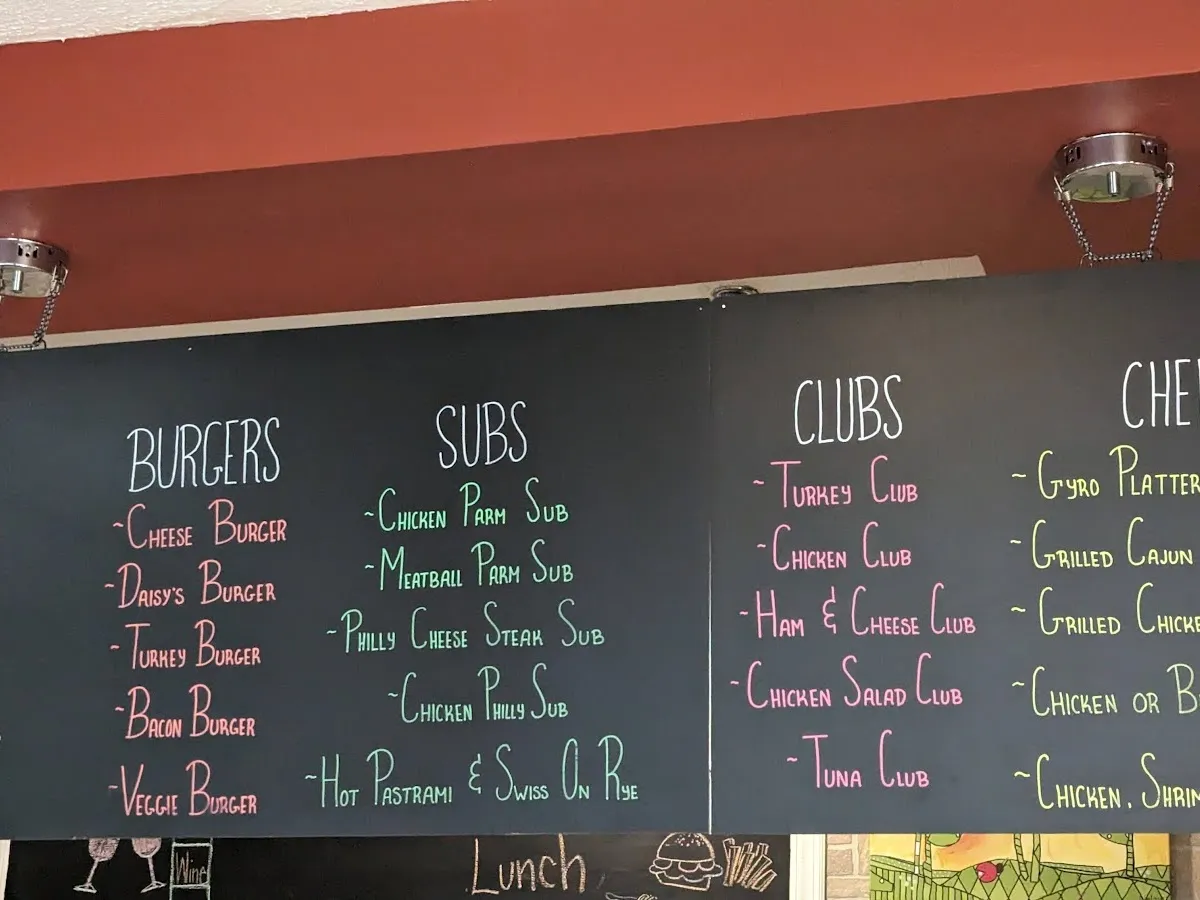 BURGERS
~Cheese Burger
~Daisy's Burger
~Turkey Burger
~Bacon Burger
~Veggie Burger
SUBS
~Chicken Parm Sub
~Meatball Parm Sub
~Philly Cheese Steak Sub
~Chicken Philly Sub
~Hot Pastrami & Swiss On Rye
CLUBS
~Turkey Club
~Chicken Club
~Ham & Cheese Club
~Chicken Salad Club
~Tuna Club
CHE
~Gyro Platter
~Grilled Cajun
~Grilled Chicke
~Chicken or B
~Chicken, Shrim
Wine
Lunch